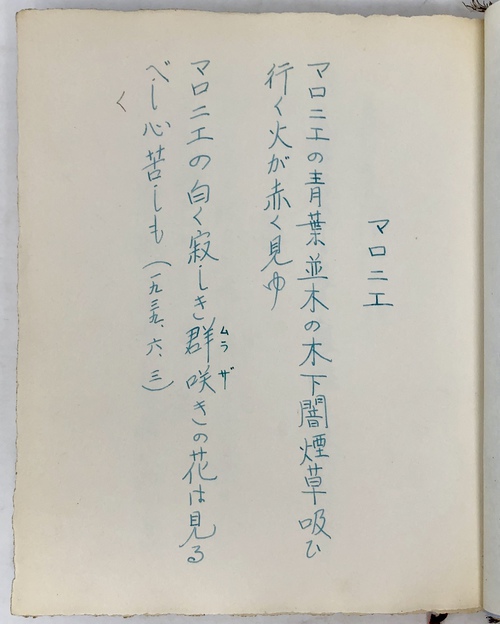 マロニエ
マロニエの青葉並木の木下闇煙草吸ひ
行く火が赤く見ゆ
マロニエの白く寂しき群咲きの花は見る
ムラザ
べし心苦しも（一九三九、六、三）
く